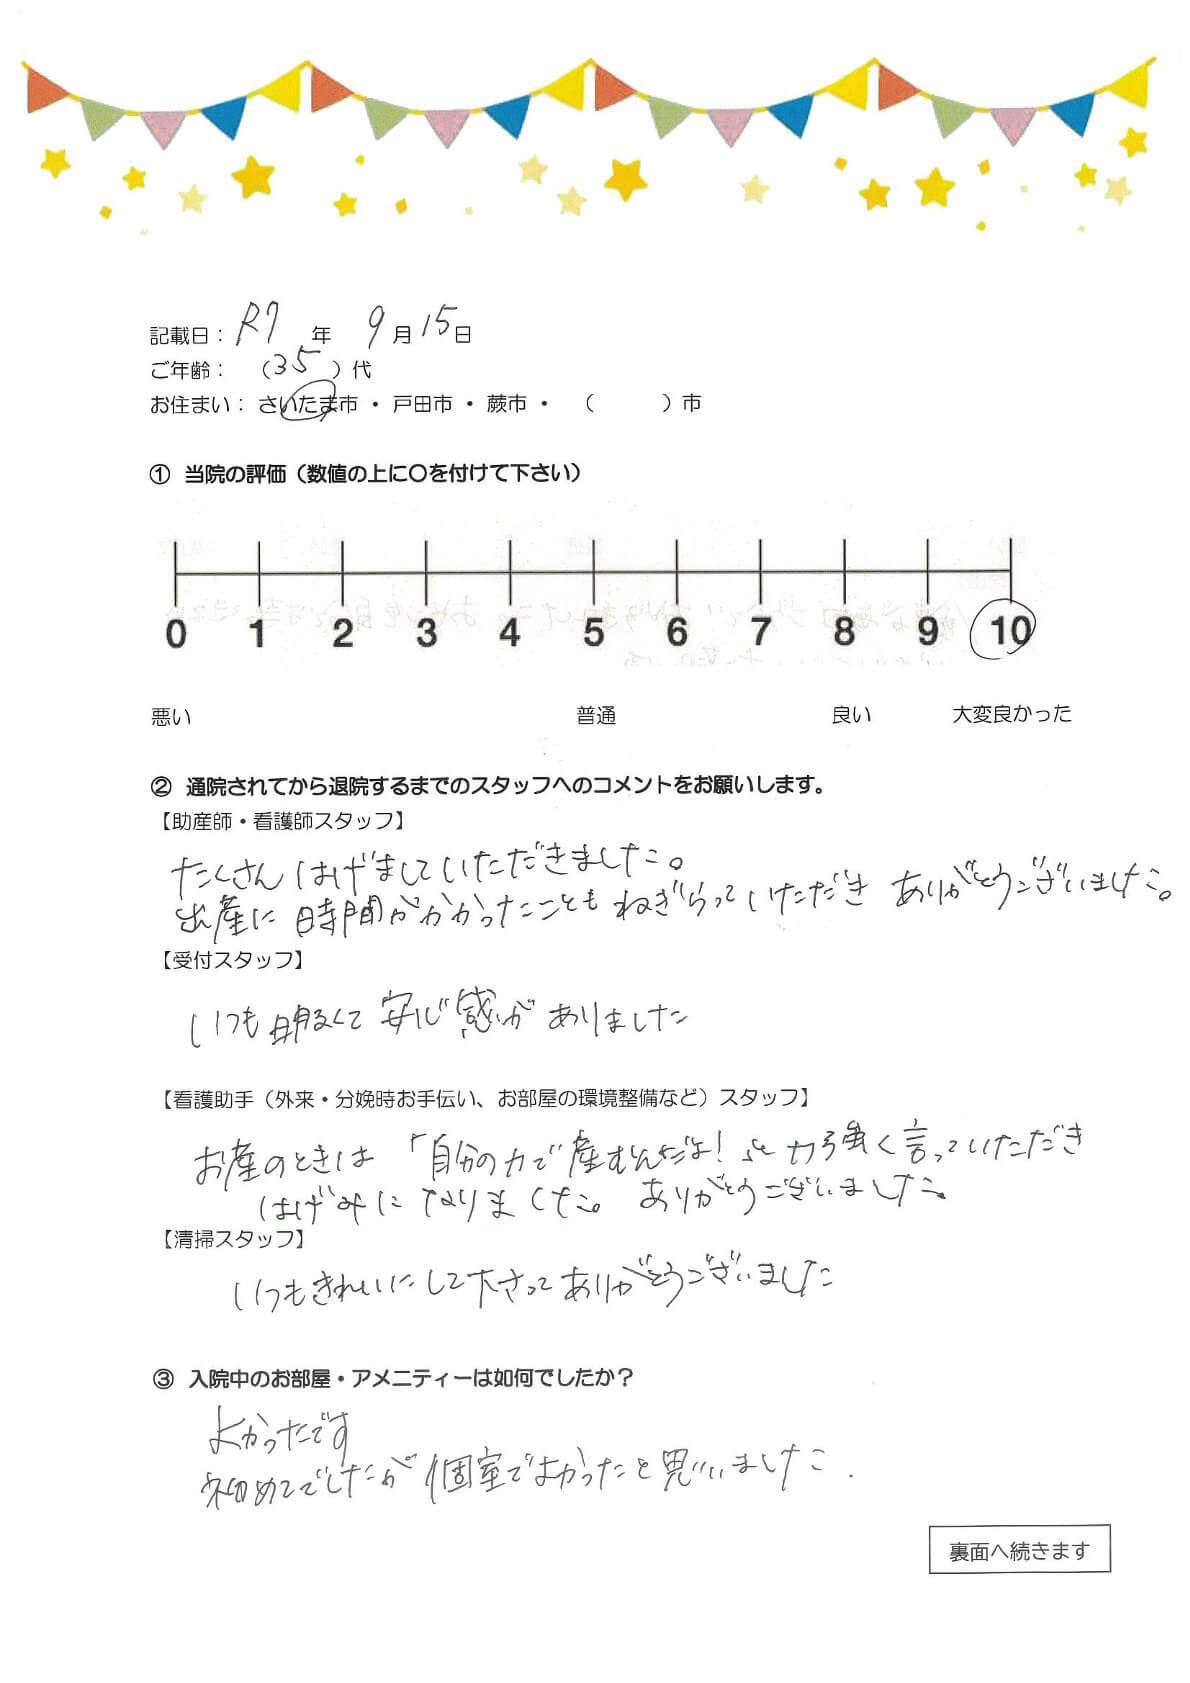 記載日： R7 年 9月15日
ご年齢： （35）代
お住まい： さいたま市 ・ 戸田市 ・ 蕨市 ・ （ ）市
① 当院の評価（数値の上に〇を付けて下さい）
0 1 2 3 4 5 6 7 8 9 10
悪い 普通 良い 大変良かった
② 通院されてから退院するまでのスタッフへのコメントをお願いします。
【助産師・看護師スタッフ】
たくさんはげましていただきました。
出産に時間がかかったこともねぎらっていただき ありがとうございました。
【受付スタッフ】
いつも明るくて安心感がありました
【看護助手（外来・分娩時お手伝い、お部屋の環境整備など）スタッフ】
お産のときは「自分の力で産むんだよ！」と力強く言っていただき
はげみになりました。 ありがとうございました。
【清掃スタッフ】
いつもきれいにして下さってありがとうございました
③ 入院中のお部屋・アメニティーは如何でしたか？
よかったです
初めてでしたが個室でよかったと思いました.
裏面へ続きます